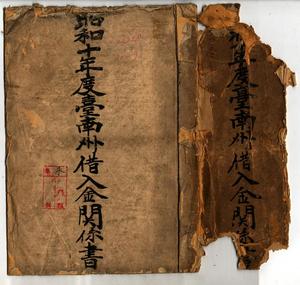 昭和十年度臺南州借入金關係書
年度臺南州借入金關係